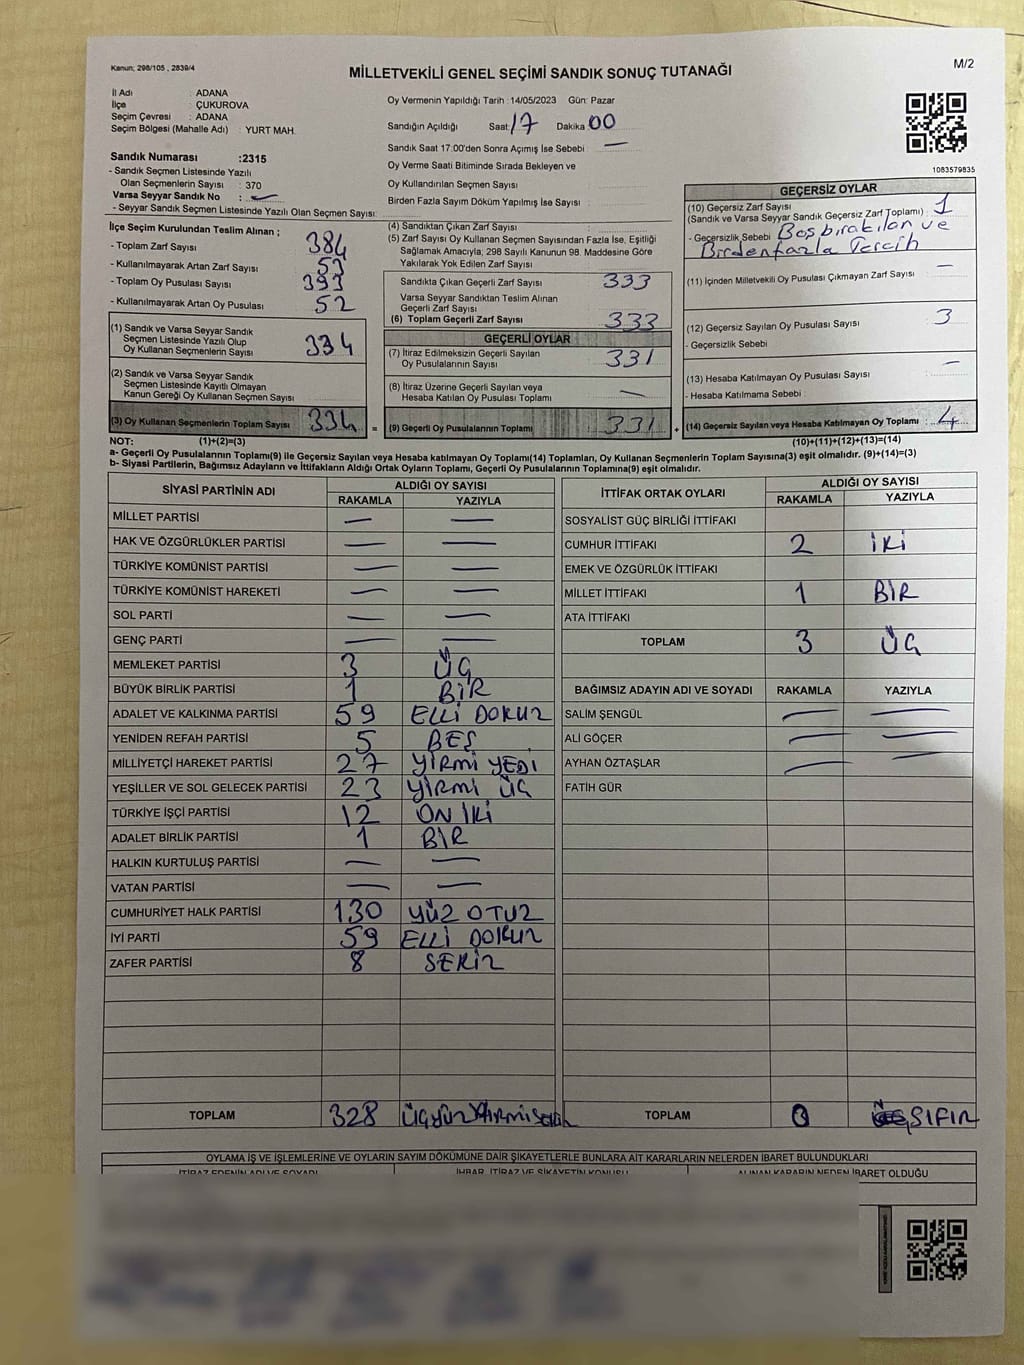 Kanun; 298/105 , 2839/4
MİLLETVEKİLİ GENEL SEÇİMİ SANDIK SONUÇ TUTANAĞI
M/2
İl Adı : ADANA
İlçe : ÇUKUROVA
Seçim Çevresi : ADANA
Seçim Bölgesi (Mahalle Adı) : YURT MAH.
Sandık Numarası :2315
- Sandık Seçmen Listesinde Yazılı
Olan Seçmenlerin Sayısı : 370
Varsa Seyyar Sandık No :
- Seyyar Sandık Seçmen Listesinde Yazılı Olan Seçmen Sayısı:
Oy Vermenin Yapıldığı Tarih :14/05/2023 Gün: Pazar
Sandığın Açıldığı Saat 17 Dakika 00
Sandık Saat 17:00'den Sonra Açımış İse Sebebi —
Oy Verme Saati Bitiminde Sırada Bekleyen ve
Oy Kullandırılan Seçmen Sayısı
Birden Fazla Sayım Döküm Yapılmış İse Sayısı :
1083579835
İlçe Seçim Kurulundan Teslim Alınan ;
- Toplam Zarf Sayısı 384
- Kullanılmayarak Artan Zarf Sayısı
- Toplam Oy Pusulası Sayısı
- Kullanılmayarak Artan Oy Pusulası 52
(1) Sandık ve Varsa Seyyar Sandık
Seçmen Listesinde Yazılı Olup
Oy Kullanan Seçmenlerin Sayısı 334
(2) Sandık ve Varsa Seyyar Sandık
Seçmen Listesinde Kayıtlı Olmayan
Kanun Gereği Oy Kullanan Seçmen Sayısı
(3) Oy Kullanan Seçmenlerin Toplam Sayısı 334 =
(4) Sandıktan Çıkan Zarf Sayısı
(5) Zarf Sayısı Oy Kullanan Seçmen Sayısından Fazla İse, Eşitliği
Sağlamak Amacıyla; 298 Sayılı Kanunun 98. Maddesine Göre
Yakılarak Yok Edilen Zarf Sayısı
Sandıkta Çıkan Geçerli Zarf Sayısı 333
Varsa Seyyar Sandıktan Teslim Alınan
Geçerli Zarf Sayısı
(6) Toplam Geçerli Zarf Sayısı 333
GEÇERLİ OYLAR
(7) İtiraz Edilmeksizin Geçerli Sayılan
Oy Pusulalarının Sayısı 331
(8) İtiraz Üzerine Geçerli Sayılan veya
Hesaba Katılan Oy Pusulası Toplamı —
(9) Geçerli Oy Pusulalarının Toplamı 331 +
GEÇERSİZ OYLAR
(10) Geçersiz Zarf Sayısı
(Sandık ve Varsa Seyyar Sandık Geçersiz Zarf Toplamı) : 1
- Geçersizlik Sebebi Boş bırakılan ve
Birden fazla Tercih
(11) İçinden Milletvekili Oy Pusulası Çıkmayan Zarf Sayısı —
(12) Geçersiz Sayılan Oy Pusulası Sayısı 3
- Geçersizlik Sebebi
(13) Hesaba Katılmayan Oy Pusulası Sayısı —
- Hesaba Katılmama Sebebi :
(14) Geçersiz Sayılan veya Hesaba Katılmayan Oy Toplamı : 4
NOT: (1)+(2)=(3)
(10)+(11)+(12)+(13)=(14)
a- Geçerli Oy Pusulalarının Toplamı(9) ile Geçersiz Sayılan veya Hesaba katılmayan Oy Toplamı(14) Toplamları, Oy Kullanan Seçmenlerin Toplam Sayısına(3) eşit olmalıdır. (9)+(14)=(3)
b- Siyasi Partilerin, Bağımsız Adayların ve İttifakların Aldığı Ortak Oyların Toplamı, Geçerli Oy Pusulalarının Toplamına(9) eşit olmalıdır.
SİYASİ PARTİNİN ADI ALDIĞI OY SAYISI
RAKAMLA YAZIYLA
MİLLET PARTİSİ — —
HAK VE ÖZGÜRLÜKLER PARTİSİ — —
TÜRKİYE KOMÜNİST PARTİSİ — —
TÜRKİYE KOMÜNİST HAREKETİ — —
SOL PARTİ — —
GENÇ PARTİ — —
MEMLEKET PARTİSİ 3 ÜÇ
BÜYÜK BİRLİK PARTİSİ 1 BİR
ADALET VE KALKINMA PARTİSİ 59 ELLİ DOKUZ
YENİDEN REFAH PARTİSİ 5 BEŞ
MİLLİYETÇİ HAREKET PARTİSİ 27 YİRMİ YEDİ
YEŞİLLER VE SOL GELECEK PARTİSİ 23 YİRMİ ÜÇ
TÜRKİYE İŞÇİ PARTİSİ 12 ON İKİ
ADALET BİRLİK PARTİSİ 1 BİR
HALKIN KURTULUŞ PARTİSİ — —
VATAN PARTİSİ — —
CUMHURİYET HALK PARTİSİ 130 YÜZ OTUZ
İYİ PARTİ 59 ELLİ DOKUZ
ZAFER PARTİSİ 8 SEKİZ
TOPLAM 328 ÜÇYÜZ YİRMİSEKİZ
İTTİFAK ORTAK OYLARI ALDIĞI OY SAYISI
RAKAMLA YAZIYLA
SOSYALİST GÜÇ BİRLİĞİ İTTİFAKI
CUMHUR İTTİFAKI 2 İKİ
EMEK VE ÖZGÜRLÜK İTTİFAKI
MİLLET İTTİFAKI 1 BİR
ATA İTTİFAKI
TOPLAM 3 ÜÇ
BAĞIMSIZ ADAYIN ADI VE SOYADI RAKAMLA YAZIYLA
SALİM ŞENGÜL — —
ALİ GÖÇER — —
AYHAN ÖZTAŞLAR — —
FATİH GÜR
TOPLAM 0 SIFIR
OYLAMA İŞ VE İŞLEMLERİNE VE OYLARIN SAYIM DÖKÜMÜNE DAİR ŞİKAYETLERLE BUNLARA AİT KARARLARIN NELERDEN İBARET BULUNDUKLARI
İTİRAZ EDENİN ADI VE SOYADI İHBAR, İTİRAZ VE ŞİKAYETİN KONUSU ALINAN KARARIN NEDEN İBARET OLDUĞU